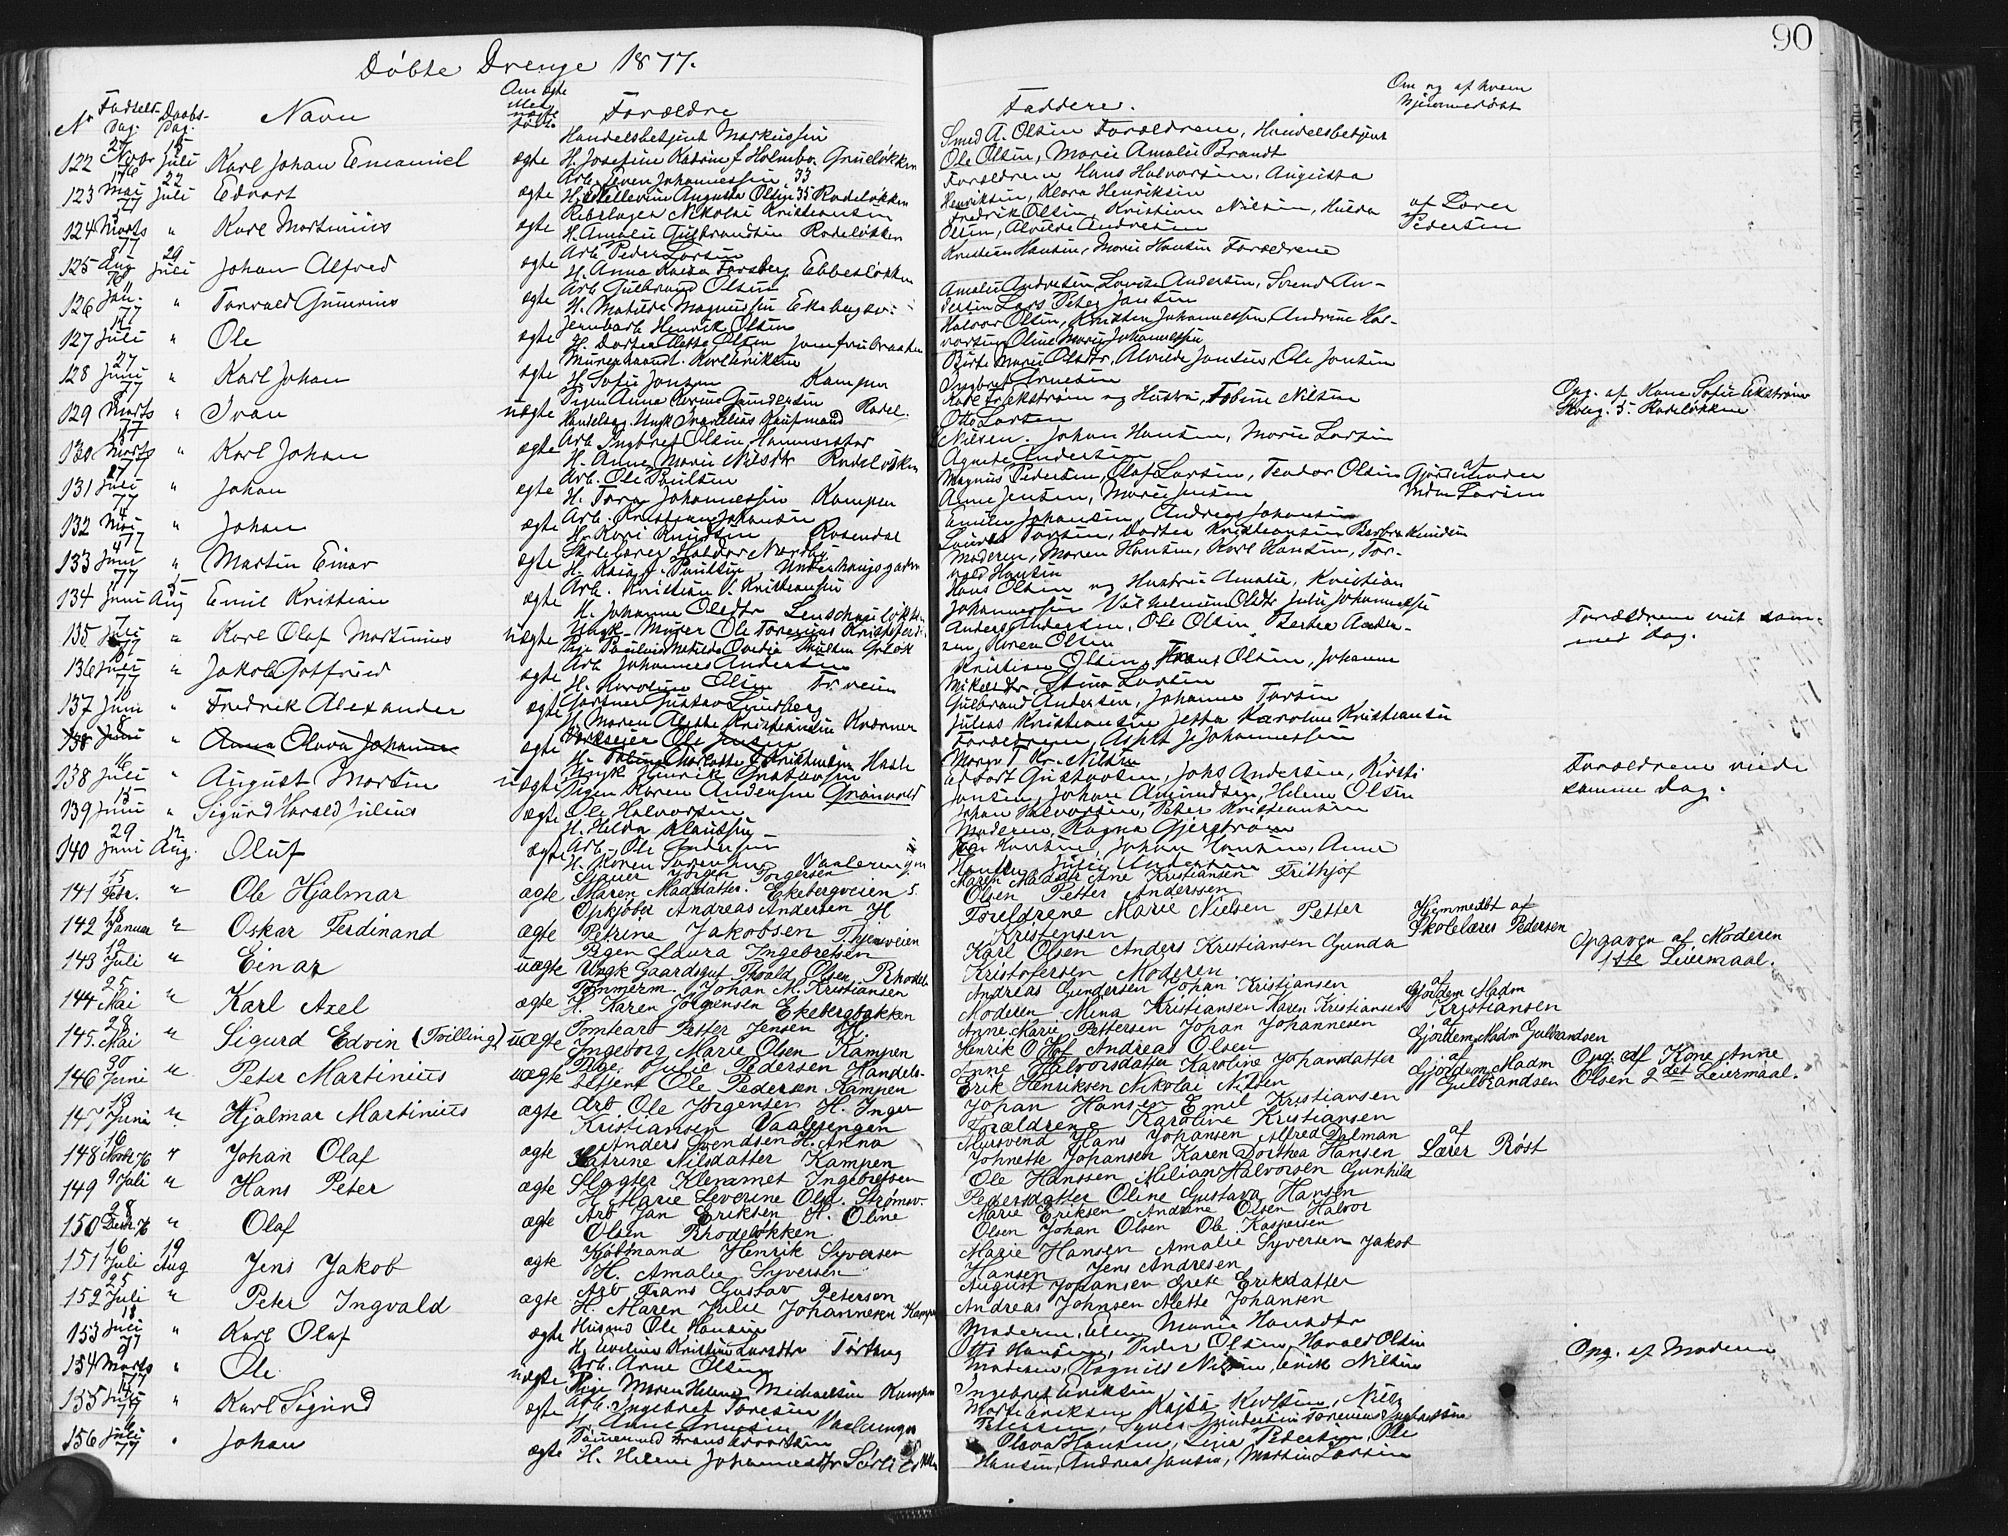 90
Døbte Drenge 1877.
No Fødsels-Dag. Daabs-Dag. Navn Om ægte eller uægte født. Forældre Faddere. Om og af hvem hjemmedøbt
122 Novbr 76 15 Juli Karl Johan Emanuel ægte Handelsbetjent Markussen
H. Josefine Katrine f. Holmbo. Grueløkken
Smed A. Olsen Forældrene, Handelsbetjent
Ole Olsen, Marie Amalie Brandt
123 Mai 77 22 Juli Edvart ægte Arb. Even Johannessen 33
H. Ellevine Augusta Olsen 35 Rodeløkken
Forældrene Hans Halvorsen, Augusta
Henriksen, Klara Henriksen
124 Marts 77 " Karl Martinius ægte Rebslager Nikolai Kristiansen
H. Amalie Gulbrandsen Rodeløkken
Fredrik Olsen, Kristian Nilsen, Hulda
Olsen, Alvilde Andresen
af Lærer
Pedersen
125 Aug 29 Juli Johan Alfred ægte Arb. Peder Larsen
H. Anna Kaisa Forsberg Ebbesløkken
Kristian Hansen, Marie Hansen Forældrene
126 Jan. 77 " Torvald Gunerius ægte Arb. Gulbrand Olsen
H. Matilde Magnussen Ekebergsv.
Amalie Andresen Lovise Andersen, Svend An-
dersen Lars Peter Jansen
127 Juli " Ole ægte Jernbarb. Henrik Olsen
H. Dortea Alette Olsen Jomfrubraaten
Halvor Olsen, Kristen Johannessen Andrine Hal-
vorsen Oline Marie Johannessen
128 27 Juni 77 " Karl Johan ægte Murerhaandl. Karl Eriksen
H. Sofie Jonsen Kampen
Berte Marie Olsdtr, Alvilde Jansen, Ole Jonsen
Ingebret Arnesen
129 Marts 77 " Ivan uægte Pigen Anna Karine Gundersen Rodel.
Handelsag. Ungk. Kaufmand
Karl Ekstrøm og Hustru, Tobine Nilsen
Otto Larsen
Opg. af Kone Sofie Ekstrøm
Rodeløkken
130 Marts 77 " Karl Johan ægte Arb. Ingbret Olsen Hammerstad
H. Anne Marie Nilsdtr Rodeløkken
Nilsen. Johan Hansen, Marie Larsen
Agnete Andersen
131 Juli 77 " Johan ægte Arb. Ole Paulsen
H. Tora Johannessen Kampen
Magnus Pedersen, Olaf Larsen, Teodor Olsen
Anne Jensen, Marie Jensen
af
Gjordemoder
Mdm Larsen
132 Mai 77 " Johan ægte Arb. Kristian Johansen
H. Kari Knudsen Rosendal
Emilie Johansen, Andreas Johansen
Larsen, Dortea Kristiansen Barbra Knudsen
133 Juni 77 " Martin Einar ægte Skolelærer Haldor Norddag
H. Kaia f. Paulsen, Underhaugsgaden
Moderen, Maren Hansen, Karl Hansen, Tor-
vald Hansen
134 Juni 5 Aug Emil Kristian ægte Arb. Kristian O. Kristiansen
H. Johanne Olsdtr Lenschouløkken
Hans Olsen og Hustru Amalie, Kristian
Johannessen Vilhelmine Olsdtr Julie Johannessen
135 7 Juli 77 " Karl Olaf Martinius uægte Ungk. Murer Ole Torenius Kristofers.
Pige Pauline Matilde Ovedia Paulsen Grløk
Anders Andersen, Ole Olsen Dortea Ander-
sen, Karen Olsen
Forældrene viet sam-
me Dag.
136 Juli 77 " Jakob Gotfried ægte Arb. Johannes Andersen
H. Karoline Olsen Tr.veien
Kristian Olsen, Frans Olsen, Johanne
Mikelsdtr, Stina Larsen
137 10 Juni " Fredrik Alexander ægte Gartner Gustav Lundberg
H. Maren Alette Kristiansen Kværner
Gulbrand Andersen, Johanne Larsen
Julius Kristiansen Jetta Karoline Kristiansen
138 8 Juni " Anna Olava Johanne ægte Værkseier Ole Jensen
H. Oline Charlotte f. Kristiansen Hasle
Forældrene, Johannessen
Maren T. Kr. Nilsen
138 16 Juli " August Martin uægte Ungk Henrik Gustavsen
Pigen Karen Andersen Grønvold
Edvart Gustavsen, Johs Andersen, Kirsti
Jansen, Johan Amundsen, Helene Olsen
Forældrene viede
samme Dag.
139 15 Juni " Sigurd Harald Julius ægte Ole Halvorsen
H. Hilda Klausen
Johan Halvorsen, Peter Kristiansen
Moderen, Ragna Gjerstrøm
140 29 Juni 12 Aug. Oluf ægte Arb. Ole Andersen
H. Karen Sørensen Vaalerengen
Hansen, Johan Hansen, Anne
Hansen Julie Andersen
141 15 Febr. " Ole Hjalmar ægte Stauer Jørgen Torgersen
Maren Madsdatter. Ekebergveien 5
Maren Madsdtr Ane Kristiansen Frithjof
Olsen Petter Anderssen
142 18 Januar " Oskar Ferdinand ægte Opkjøber Andreas Andersen H
Petrine Jakobsen T.hjemveien
Foreldrene Marie Nielsen Petter
Kristensen
Hjemmedøbt af
Skolelærer Pedersen
143 12 Juli " Einar uægte Pigen Laura Ingebretsen
Ungk Gaardsgut Thvald Olsen, Rhodel.
Karl Olsen Anders Kristiansen Gunda
Kristofersen Moderen
Opgaven af Moderen
1ste Leiermaal.
144 25 Mai " Karl Axel ægte Tømmerm. Johan M. Kristiansen
H. Karen Jørgensen Ekebergbakken
Andreas Gundersen Johan Kristiansen
Moderen Mina Kristiansen Karen Kristiansen
af
Gjordem Madm
Kristiansen
145. 28 Mai " Sigurd Edvin (Tvilling) uægte Tomtearb Petter Jensen H.
Ingeborg Marie Olsen Kampen
Anne Marie Pettersen Johan Johannesen
Henrik O Hof Andreas Olsen
af
Gjordem Madm Gulbrandsen
146 30 Juni " Peter Martinius uægte Pige. Julie Pedersen Handels-
betjent Ole Pedersen Kampen
Anne Halvorsdatter Karoline Johansdatter
Erik Henriksen Nikolai Nilsen
af
Gjordem Madm
Gulbrandsen
Opg. af Kone Anne
Olsen 2det Leiermaal.
147 13 Juni " Hjalmar Martinius ægte Arb Ole Jørgensen H. Inger
Kristiansen Vaalerengen
Johan Hansen Emil Kristiansen
Forældrene Karoline Kristiansen
148 16 Novbr 76 " Johan Olaf ægte Anders Svendsen H. Anna
Katrine Nilsdatter Kampen
Mursvend Hans Johansen Alfred Dalman
Johnette Johansen Karen Dorthea Hansen
af
Lærer Røst
149 9 Juli " Hans Peter ægte Slagter Klemmet Ingebretsen
H. Marie Severine Olsd. Strømsv.
Ole Hanssen Milian Halvorsen Gunhild
Pedersdatter Oline Gustava Hansen
150 28 Decbr 76 " Olaf ægte Arb Jan Eriksen H. Oline
Olsen Rhodeløkken
Marie Eriksen Andrine Olsen Halvor
Olsen Johan Olsen Ole Kaspersen
151 16 Juli 19 Aug Jens Jakob ægte Kjøbmand Henrik Syversen
H. Amalie Syversen
Marie Hansen Amalie Syversen Jakob
Hansen Jens Andresen
152 25 Juli " Peter Ingvald ægte Arb Frans Gustav Peterson
H. Maren Julie Johannesen Kampen
August Johansen Grete Eriksdatter
Andreas Johnsen Alette Johansen
153 18 Juli 77 " Karl Olaf ægte Husmd Ole Hansen
H. Eveline Kristine Larsdtr Tørtberg
Moderen, Elen Marie Hansdtr
Ole Hansen, Peder Olsen, Harald Olsen
154 9 Marts 77 " Ole uægte Arb. Arne Olsen
Pige Maren Helene Michaelsen Kampen
Moderen, Ragnild Nilsen, Erik Nilsen
Ingebret Eriksen
Opg. af Moderen
155 14 Juli 77 " Karl Sigurd ægte Arb. Ingebret Toresen
H. Anne Arnesen Vaalerengen
Marte Eriksen Kajsa Karlsen, Nils
Petersen, Syver Gundersen Torenius Ingebretsen
156 6 Juli 77 " Johan ægte Tømmermd Frans Edvartsen
H. Helene Johannesdtr Sørli
Olava Hansen, Lina Pedersen, Ole
Hansen, Andreas Jansen, Martin Larsen